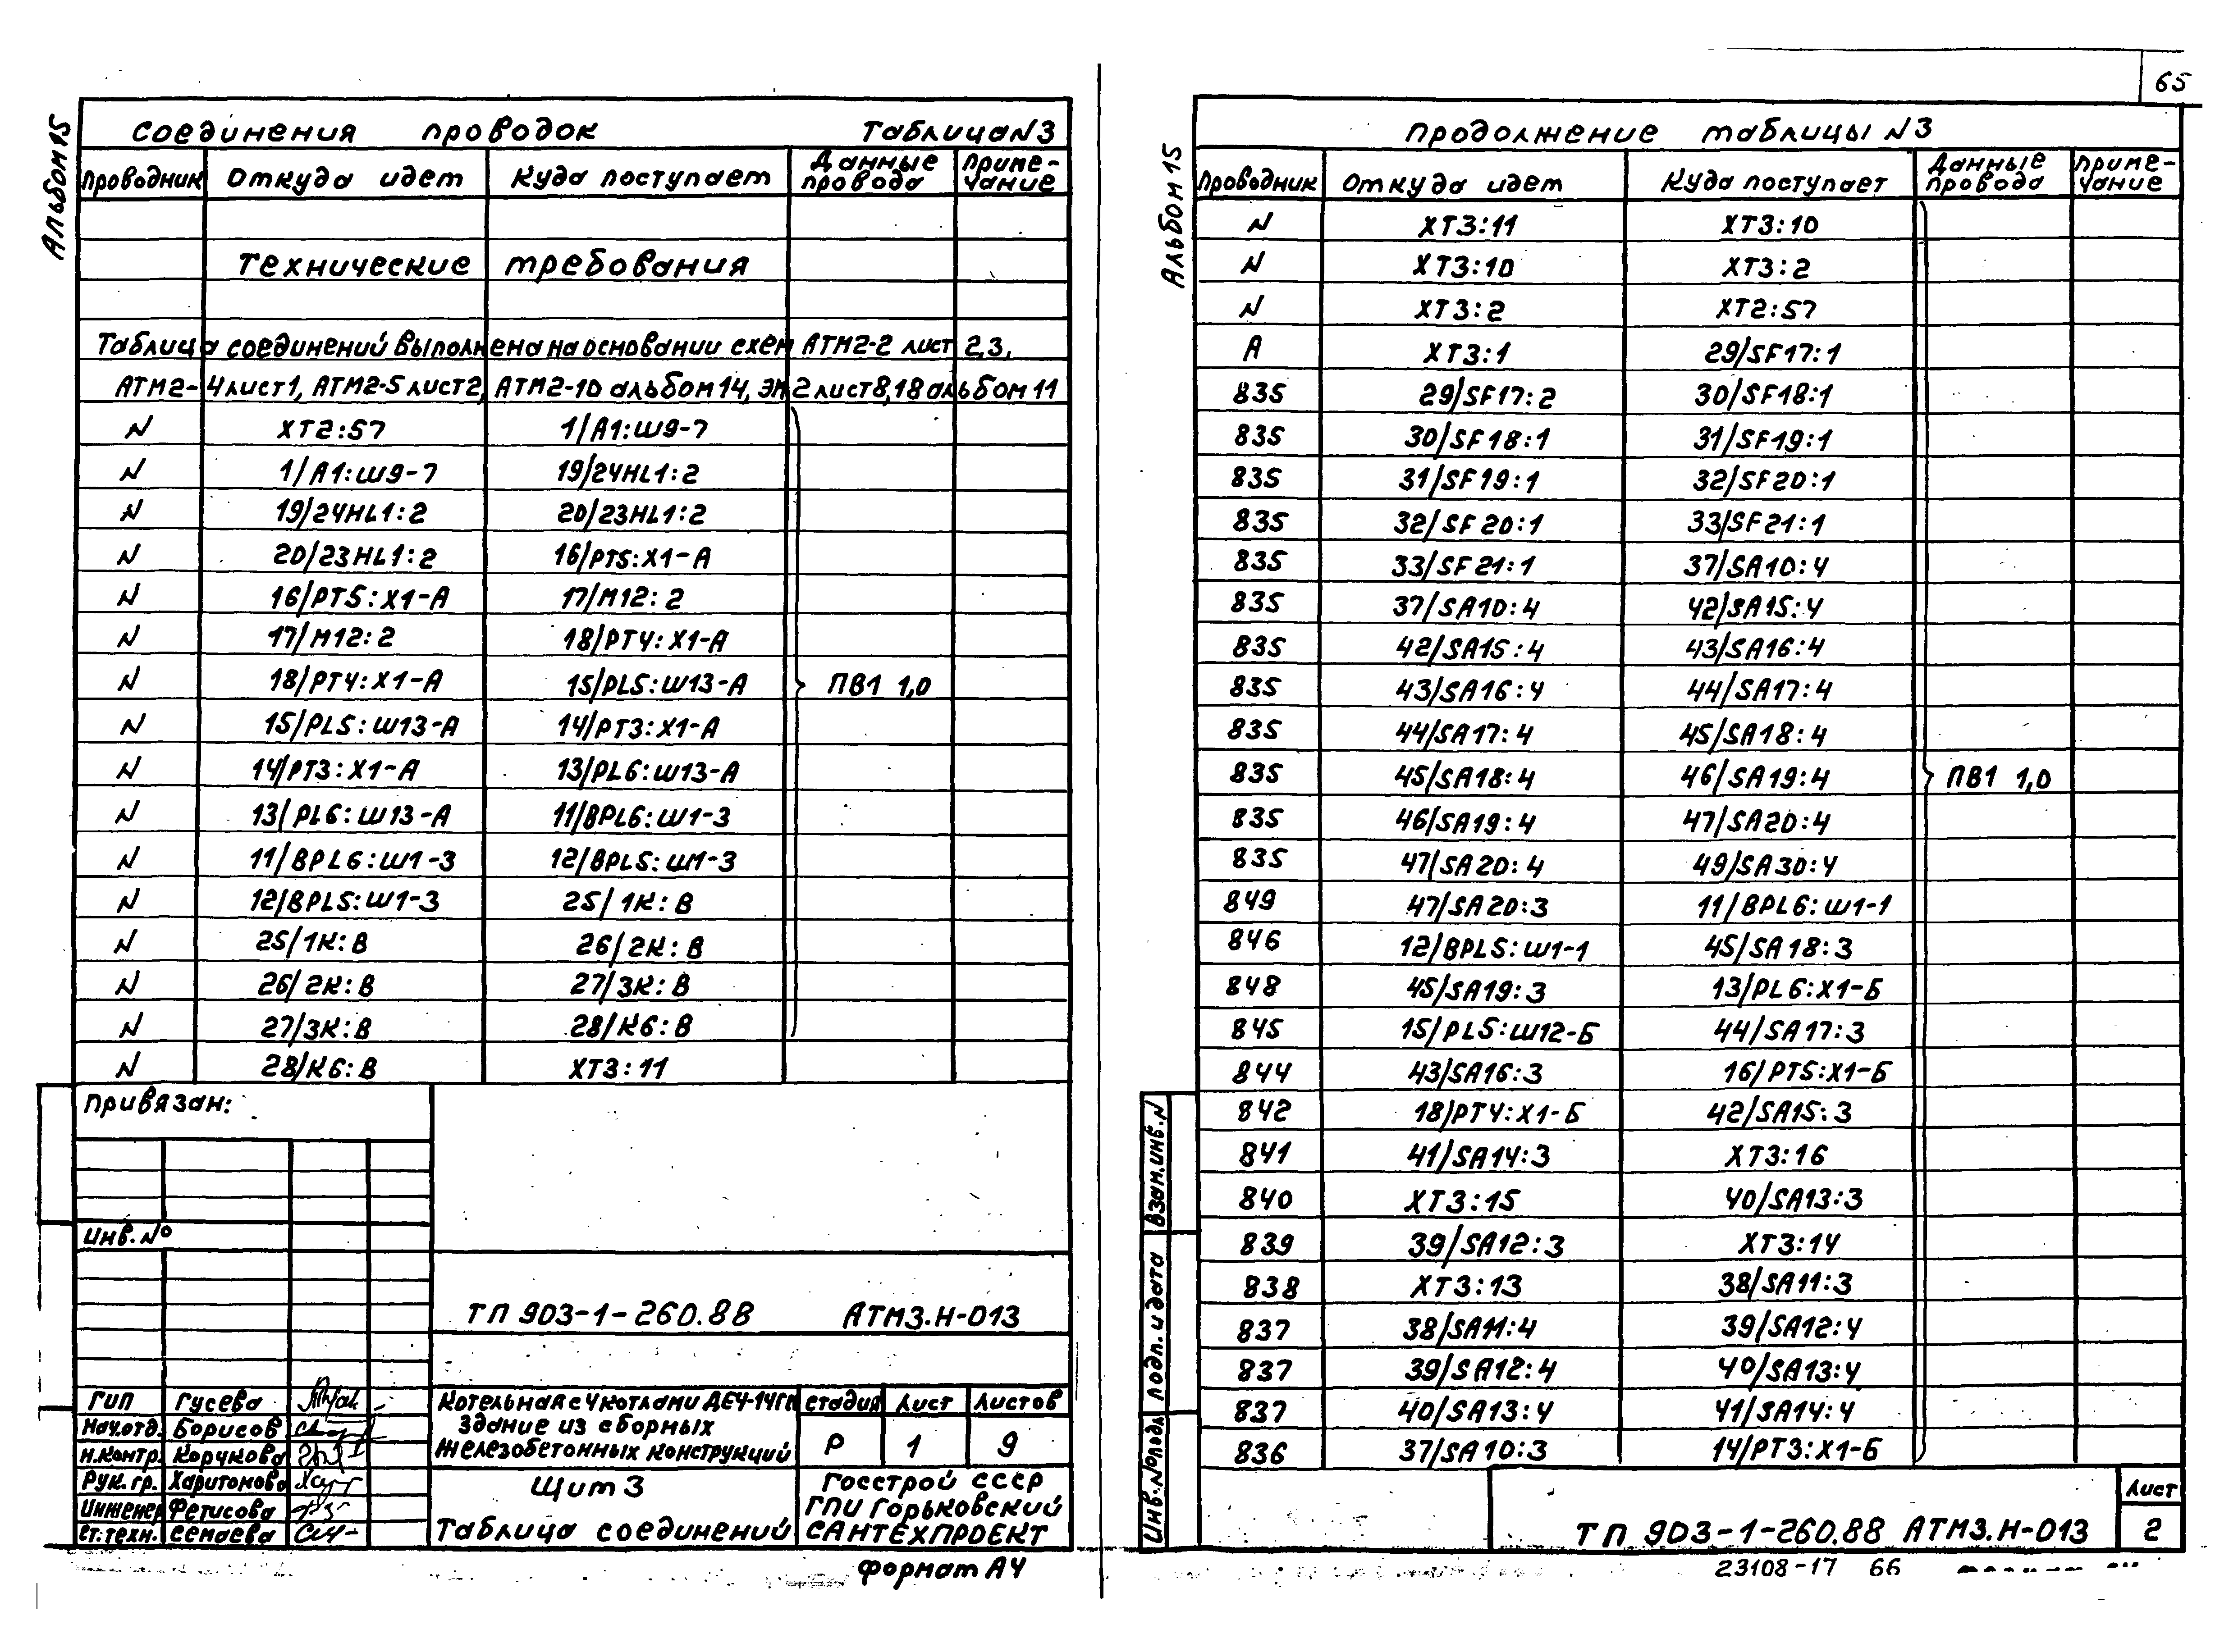 65
Альбом 15
Соединения проводок Таблица N3
Проводник Откуда идет Куда поступает Данные провода Приме-чание
Технические требования
Таблица соединений выполнена на основании схем АТМ2-2 лист 2,3,
АТМ2-4 лист1, АТМ2-5 лист2, АТМ2-10 альбом 14, ЭМ2 лист8,18 альбом 11
N ХТ2:57 1/А1:Ш9-7
N 1/А1:Ш9-7 19/24HL1:2
N 19/24HL1:2 20/23HL1:2
N 20/23HL1:2 16/РТ5:Х1-А
N 16/РТ5:Х1-А 17/М12:2
N 17/М12:2 18/РТ4:Х1-А
N 18/РТ4:Х1-А 15/PL5:Ш13-А ПВ1 1,0
N 15/PL5:Ш13-А 14/РТ3:Х1-А
N 14/РТ3:Х1-А 13/PL6:Ш13-А
N 13/PL6:Ш13-А 11/BPL6:Ш1-3
N 11/BPL6:Ш1-3 12/BPL5:Ш1-3
N 12/BPL5:Ш1-3 25/1К:В
N 25/1К:В 26/2К:В
N 26/2К:В 27/3К:В
N 27/3К:В 28/К6:В
N 28/К6:В ХТ3:11
Привязан:
Инв.№
ТП 903-1-260.88 АТМ3.Н-013
ГИП Гусева
Нач.отд. Борисов
Н.контр. Корчкова
Рук.гр. Харитонова
Инженер Фетисова
Ст.техн. Семаева
Котельная с 4 котлами ДЕ4-14ГМ
Здание из сборных
железобетонных конструкций
Стадия Лист Листов
Р 1 9
Щит 3
Таблица соединений
Госстрой СССР
ГПИ Горьковский
САНТЕХПРОЕКТ
Формат А4
Альбом 15
Продолжение таблицы N3
Проводник Откуда идет Куда поступает Данные провода Приме-чание
N ХТ3:11 ХТ3:10
N ХТ3:10 ХТ3:2
N ХТ3:2 ХТ2:57
А ХТ3:1 29/SF17:1
835 29/SF17:2 30/SF18:1
835 30/SF18:1 31/SF19:1
835 31/SF19:1 32/SF20:1
835 32/SF20:1 33/SF21:1
835 33/SF21:1 37/SA10:4
835 37/SA10:4 42/SA15:4
835 42/SA15:4 43/SA16:4
835 43/SA16:4 44/SA17:4
835 44/SA17:4 45/SA18:4
835 45/SA18:4 46/SA19:4 ПВ1 1,0
835 46/SA19:4 47/SA20:4
835 47/SA20:4 49/SA30:4
849 47/SA20:3 11/BPL6:Ш1-1
846 12/BPL5:Ш1-1 45/SA18:3
848 45/SA19:3 13/PL6:Х1-Б
845 15/PL5:Ш12-Б 44/SA17:3
844 43/SA16:3 16/РТ5:Х1-Б
842 18/РТ4:Х1-Б 42/SA15:3
841 41/SA14:3 ХТ3:16
840 ХТ3:15 40/SA13:3
839 39/SA12:3 ХТ3:14
838 ХТ3:13 38/SA11:3
837 38/SA11:4 39/SA12:4
837 39/SA12:4 40/SA13:4
837 40/SA13:4 41/SA14:4
836 37/SA10:3 14/РТ3:Х1-Б
Взам.инв.N
Подп. и дата
Инв.Nподл
ТП 903-1-260.88 АТМ3.Н-013
Лист
2
23108-17 66